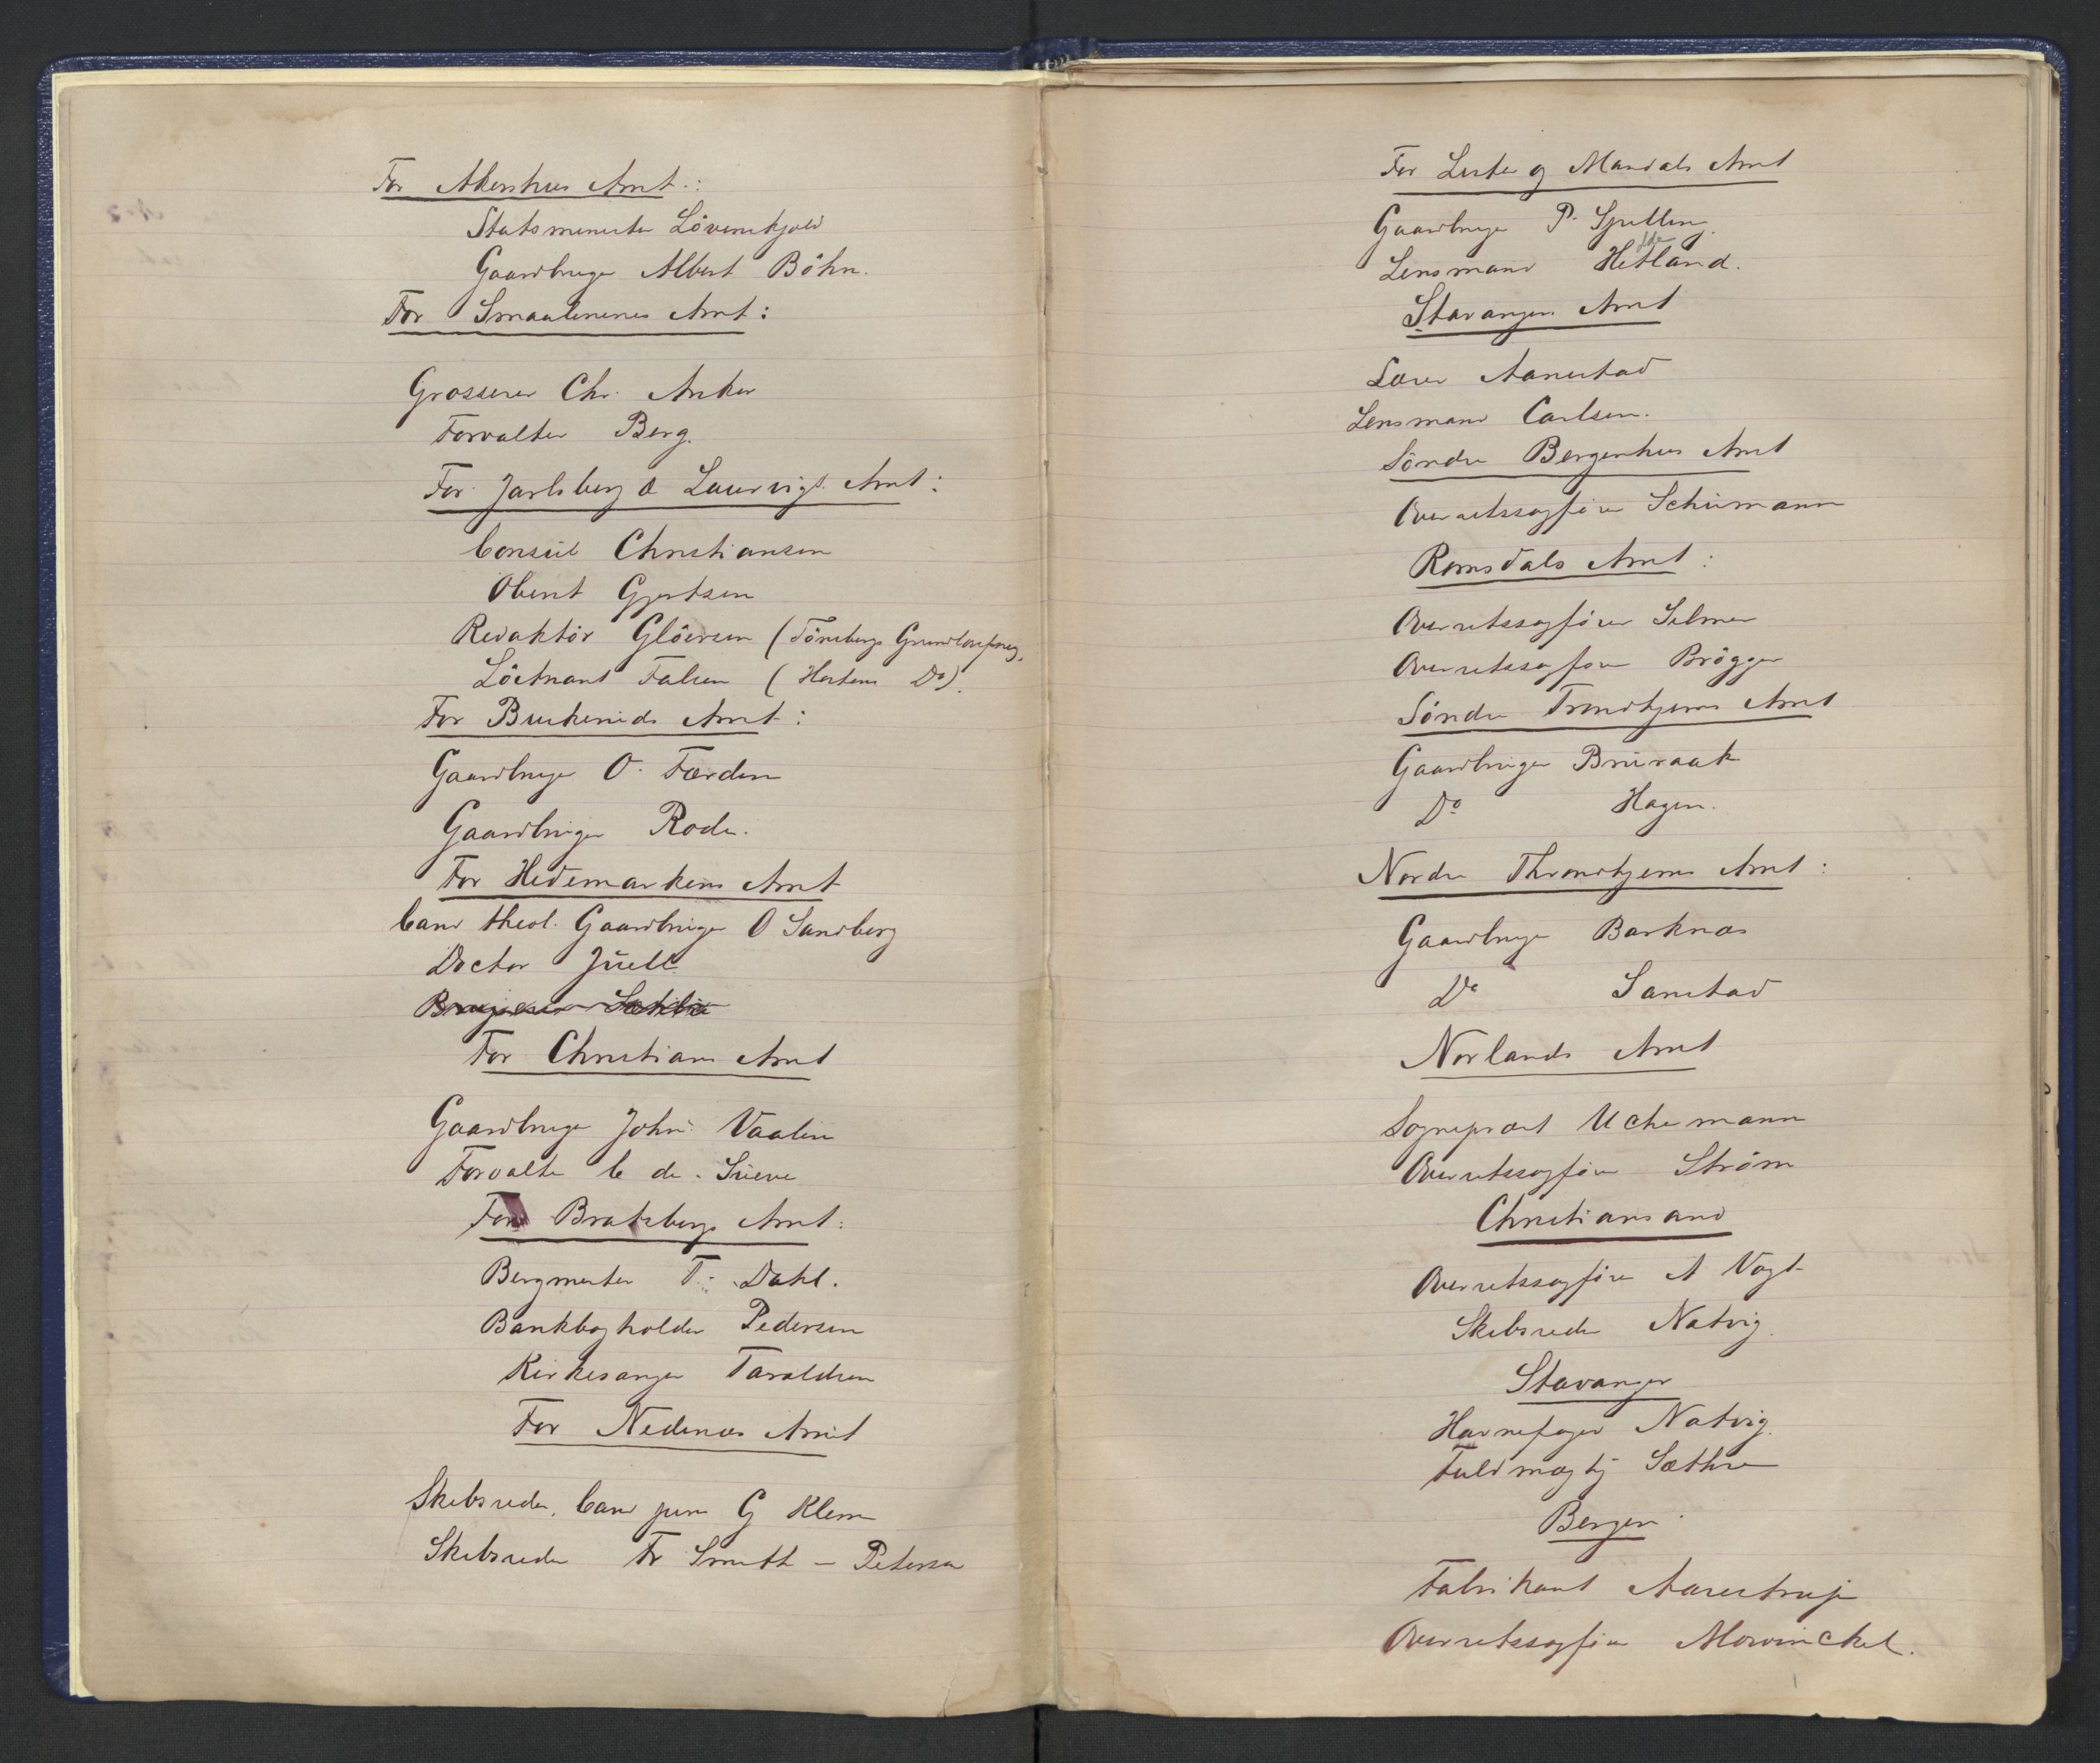 For Akershus Amt.:
Statsminister Lövenskjold
Gaardbruger Albert Böhn.
For Smaalenenes Amt:
Grosserer Chr. Anker
Forvalter Berg.
For Jarlsberg & Laurvigs Amt:
Consul Christiansen
Oberst Gjertsen
Redaktör Glöersen (Tönsbergs Grundlovsforeg.
Löitnant Falsen (Hortens Do).
For Buskeruds Amt:
Gaardbruger O. Færden
Gaardbruger Rode.
For Hedemarkens Amt
Cand theol. Gaardbruger O Sandberg
Doctor Juell
For Christians Amt
Gaardbruger Johs. Vaalen
Forvalter C de. Seve
For Bratsbergs Amt:
Bergmester T. Dahl.
Bankbogholder Pedersen
Kirkesanger Taraldsen
For Nedenæs Amt
Skibsreder, Cand juris G Klem
Skibsreder Fr Smith - Petersen
For Lister og Mandals Amt
Gaardbruger P. Spilling.
Lensmand Hetland.
Stavangers Amt
Lærer Aanestad
Lensmand Carlsen.
Söndre Bergenhus Amt
Overretssagförer Schumann
Romsdals Amt:
Overretssagförer Selmer
Overretssagförer Brögger
Söndre Trondhjems Amt
Gaardbruger Bruraak
Do Hagen.
Nordre Throndhjems Amt:
Gaardbruger Barknæs
Do Sanstad
Norlands Amt
Sogneprest Uchermann
Overretssagförer Ström
Christiansand
Overretssagförer A Vogt
Skibsreder Natvig.
Stavanger
Havnefoged Natvig.
Fuldmægtig Sæthre
Bergen.
Fabrikant Aarestrup
Overretssagförer Mowinckel.